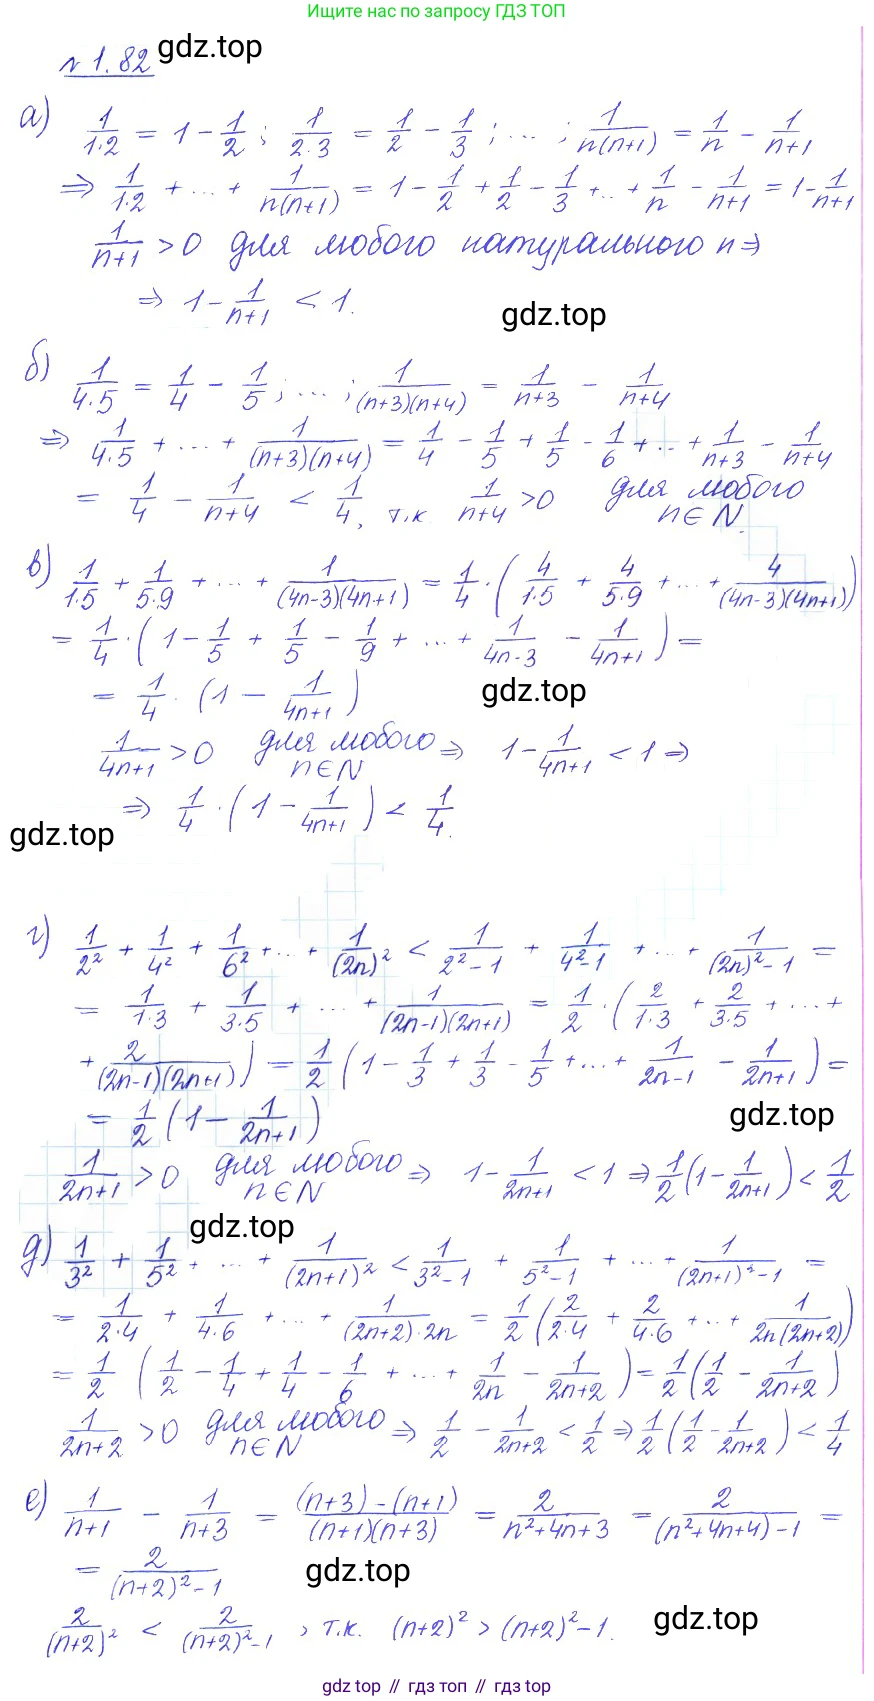 Ищите нас по запросу ГДЗ ТОП
№ 1.82 gdz.top
а) 1/(1·2) = 1 - 1/2 ; 1/(2·3) = 1/2 - 1/3 ; ... ; 1/(n(n+1)) = 1/n - 1/(n+1)
⇒ 1/(1·2) + ... + 1/(n(n+1)) = 1 - 1/2 + 1/2 - 1/3 + ... + 1/n - 1/(n+1) = 1 - 1/(n+1)
1/(n+1) > 0 для любого натурального n ⇒
⇒ 1 - 1/(n+1) < 1.
gdz.top
б) 1/(4·5) = 1/4 - 1/5 ; ... ; 1/((n+3)(n+4)) = 1/(n+3) - 1/(n+4)
⇒ 1/(4·5) + ... + 1/((n+3)(n+4)) = 1/4 - 1/5 + 1/5 - 1/6 + ... + 1/(n+3) - 1/(n+4)
= 1/4 - 1/(n+4) < 1/4, т.к 1/(n+4) > 0 для любого n∈N.
в) 1/(1·5) + 1/(5·9) + ... + 1/((4n-3)(4n+1)) = 1/4 · (4/(1·5) + 4/(5·9) + ... + 4/((4n-3)(4n+1)))
= 1/4 · (1 - 1/5 + 1/5 - 1/9 + ... + 1/(4n-3) - 1/(4n+1)) =
= 1/4 · (1 - 1/(4n+1))
gdz.top
1/(4n+1) > 0 для любого n∈N ⇒ 1 - 1/(4n+1) < 1 ⇒
⇒ 1/4 · (1 - 1/(4n+1)) < 1/4.
gdz.top
г) 1/2² + 1/4² + 1/6² + ... + 1/(2n)² < 1/(2²-1) + 1/(4²-1) + ... + 1/((2n)²-1) =
= 1/(1·3) + 1/(3·5) + ... + 1/((2n-1)(2n+1)) = 1/2 · (2/(1·3) + 2/(3·5) + ... +
+ 2/((2n-1)(2n+1))) = 1/2 (1 - 1/3 + 1/3 - 1/5 + ... + 1/(2n-1) - 1/(2n+1)) =
= 1/2 (1 - 1/(2n+1))
gdz.top
1/(2n+1) > 0 для любого n∈N ⇒ 1 - 1/(2n+1) < 1 ⇒ 1/2 (1 - 1/(2n+1)) < 1/2
gdz.top
д) 1/3² + 1/5² + ... + 1/(2n+1)² < 1/(3²-1) + 1/(5²-1) + ... + 1/((2n+1)²-1) =
= 1/(2·4) + 1/(4·6) + ... + 1/((2n+2)·2n) = 1/2 (2/(2·4) + 2/(4·6) + ... + 1/(2n(2n+2)))
= 1/2 (1/2 - 1/4 + 1/4 - 1/6 + ... + 1/2n - 1/(2n+2)) = 1/2 (1/2 - 1/(2n+2))
1/(2n+2) > 0 для любого n∈N ⇒ 1/2 - 1/(2n+2) < 1/2 ⇒ 1/2 (1/2 - 1/(2n+2)) < 1/4
е) 1/(n+1) - 1/(n+3) = ((n+3)-(n+1))/((n+1)(n+3)) = 2/(n²+4n+3) = 2/((n²+4n+4)-1) =
= 2/((n+2)²-1)
gdz.top
2/(n+2)² < 2/((n+2)²-1) , т.к. (n+2)² > (n+2)²-1.
gdz.top
gdz top // гдз топ // gdz top